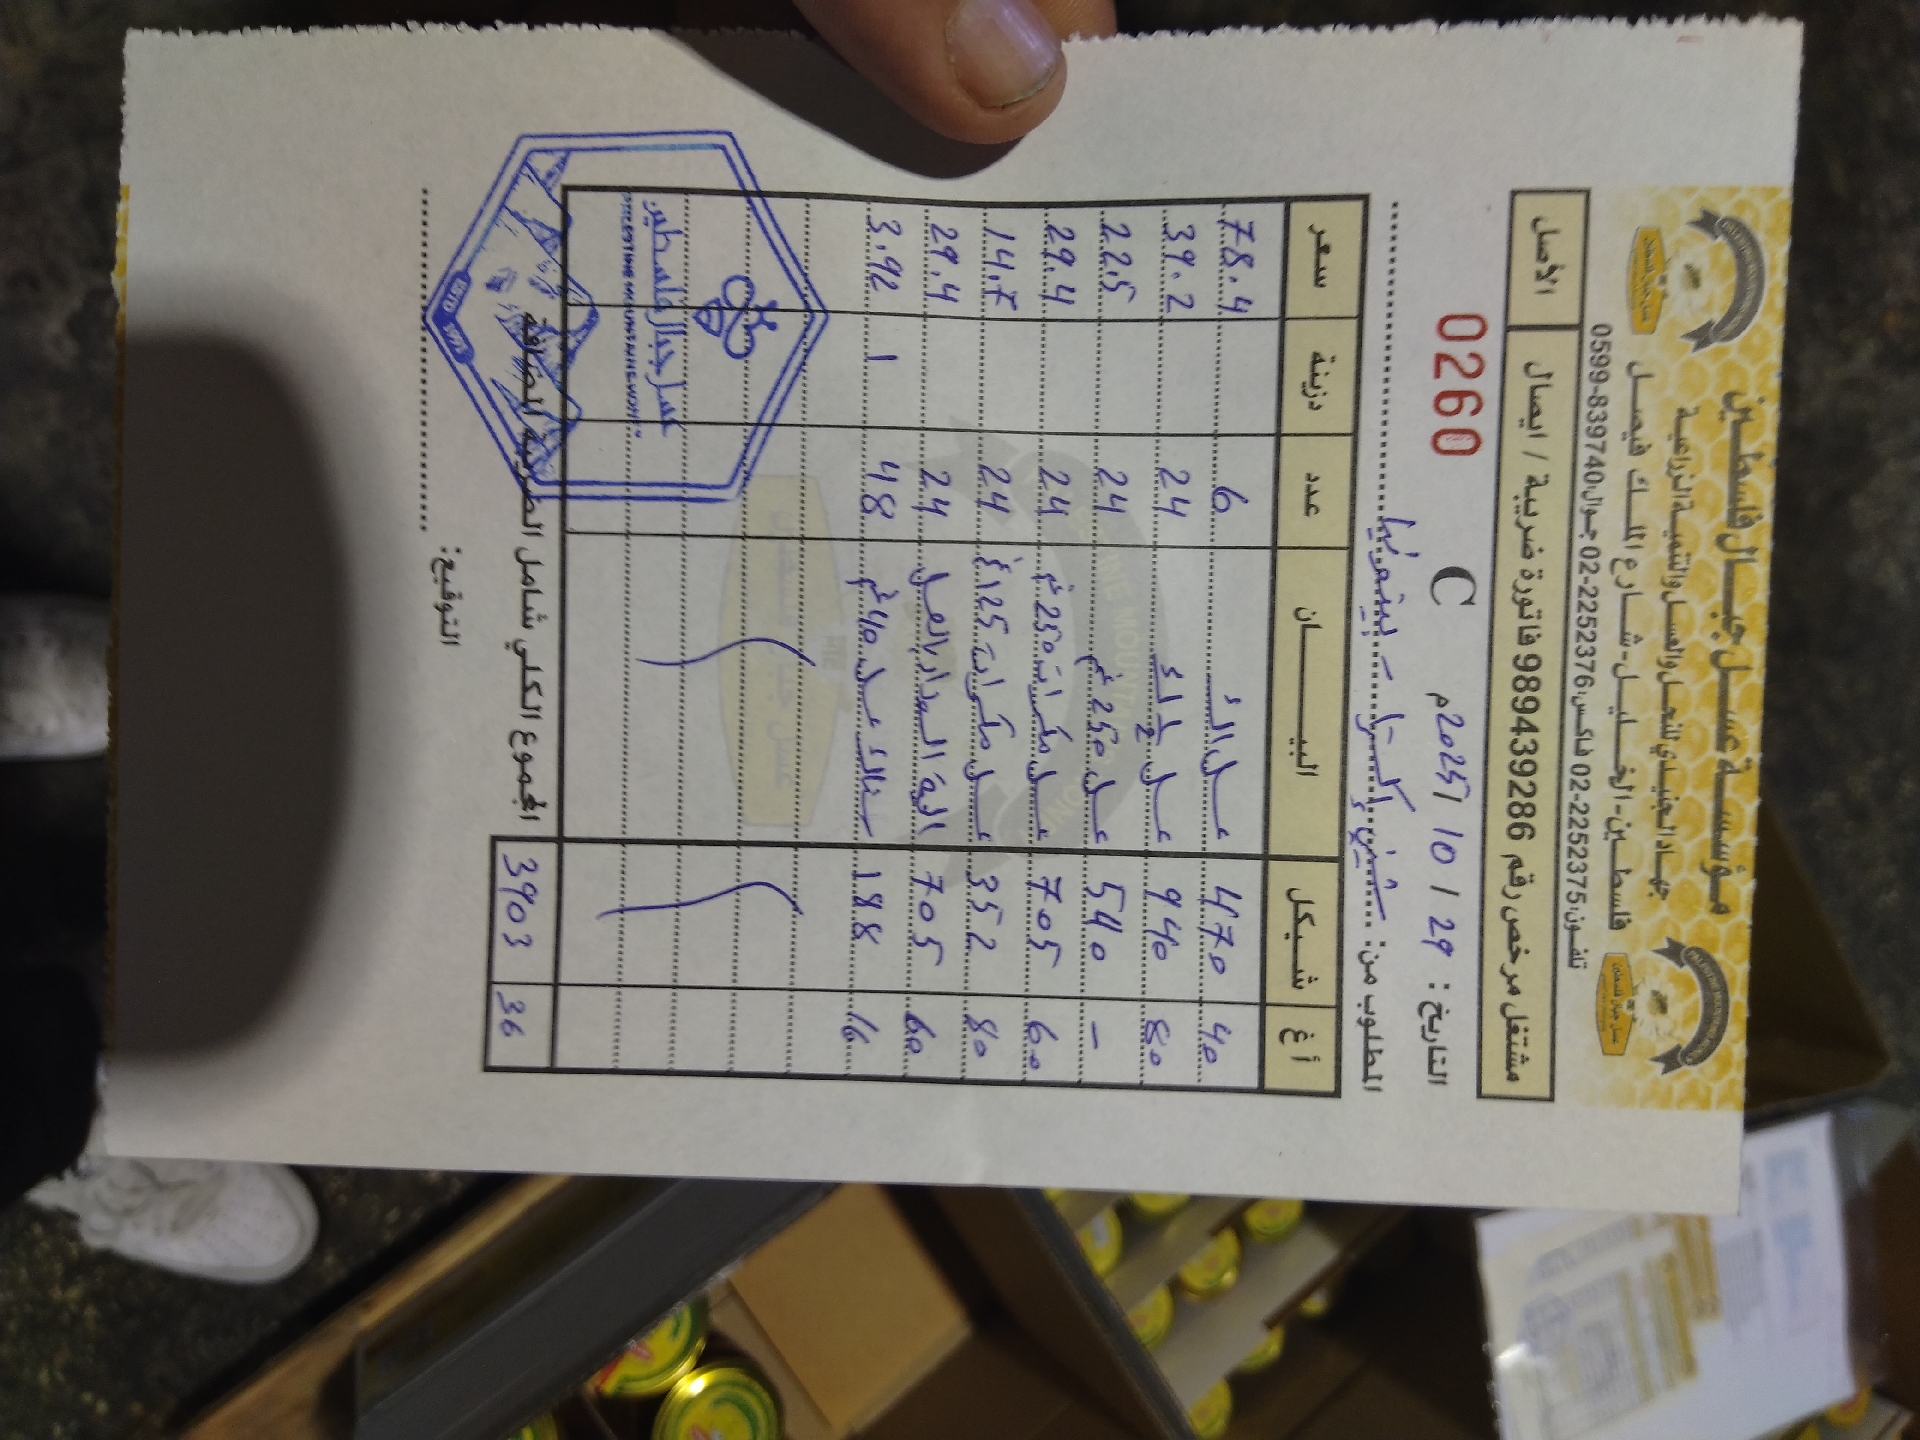 مؤسسة عسل جبال فلسطين
جهاد الجنيدي للنحل والعسل والتنمية الزراعية
فلسطين - الخليل - شارع الملك فيصل
تلفون: 02-2252375 فاكس: 02-2252376 جوال: 0599-839740
مشتغل مرخص رقم 989439286 فاتورة ضريبية / ايصال الأصل
التاريخ: 29 / 10 / 2025م C 0260
المطلوب من: إكسترا -
أغ شيكل البيـــــان عدد دزينة سعر
40 470 عسل 6 78.4
80 940 عسل 24 39.2
- 540 عسل 250 غم 24 22.5
60 705 عسل مكسرات 250 غم 24 29.4
80 352 عسل مكسرات 125 غ 24 14.7
60 705 24 29.4
16 188 عسل 40 غم 48 1 3.92
عسل جبال فلسطين
PALESTINE MOUNTAINS HONEY
36 3903 المجموع الكلي شامل الضريبة المضافة
التوقيع: